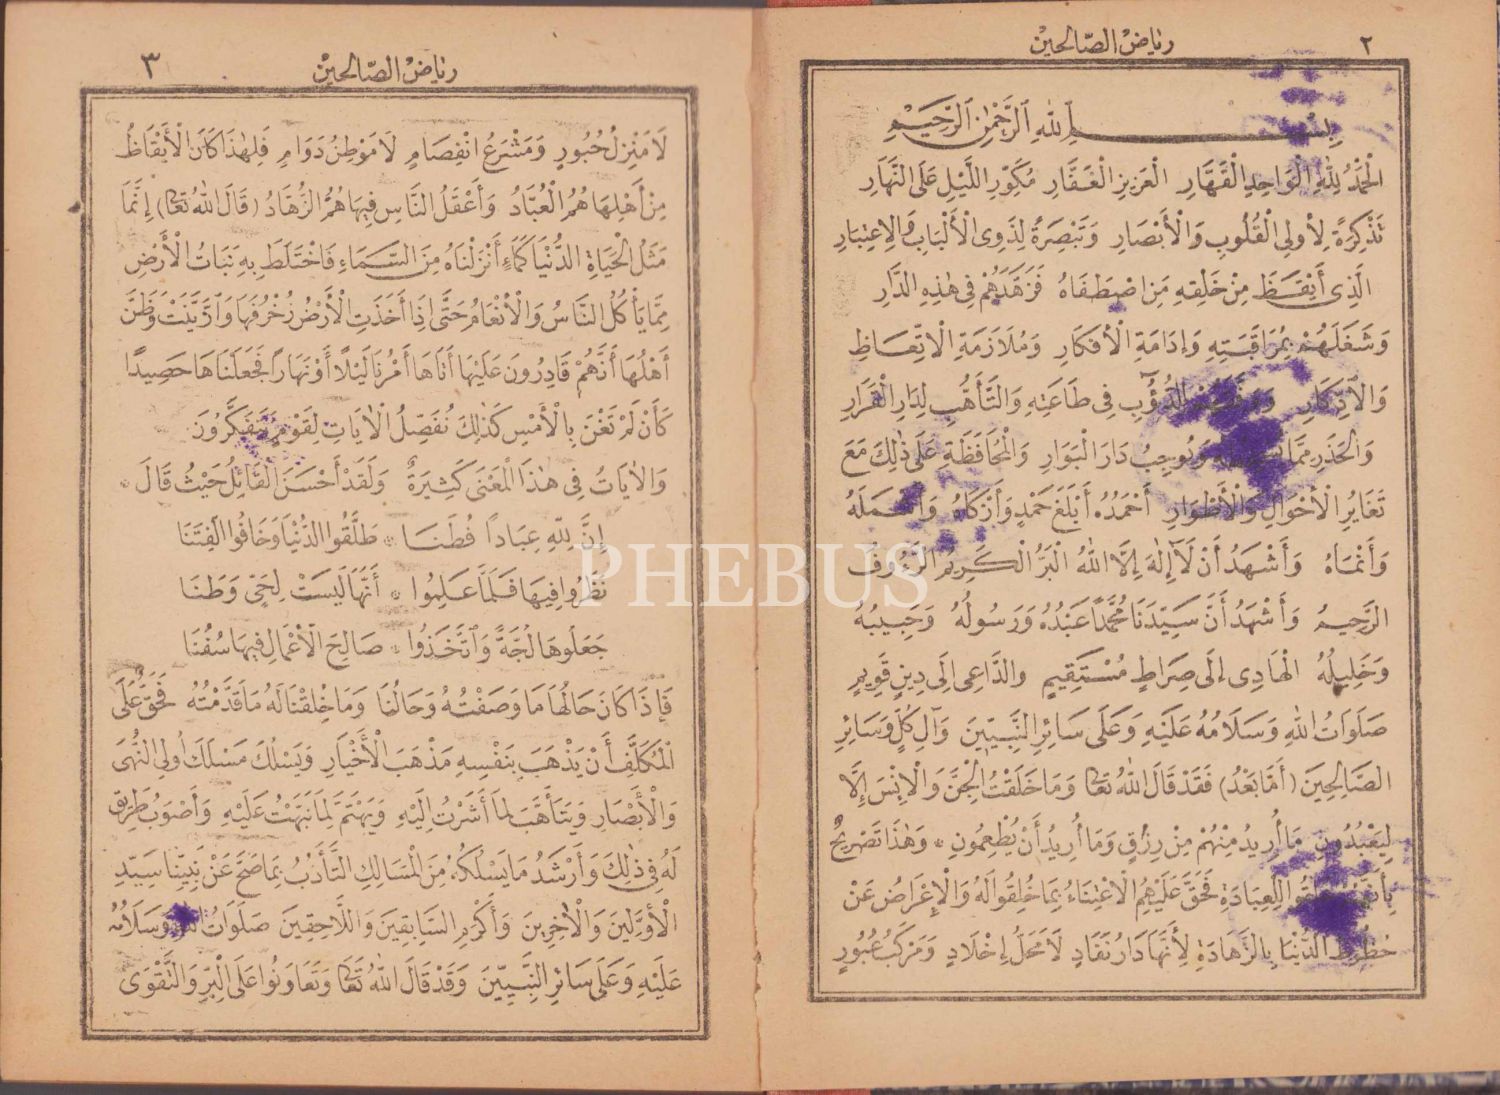 رياض الصالحين ٢
بِسْمِ اللهِ الرَّحْمٰنِ الرَّحِيمِ
اَلْحَمْدُ لِلّٰهِ الْوَاحِدِ الْقَهَّارِ الْعَزِيزِ الْغَفَّارِ مُكَوِّرِ اللَّيْلِ عَلَى النَّهَارِ
تَذْكِرَةً لِأُولِي الْقُلُوبِ وَالْأَبْصَارِ وَتَبْصِرَةً لِذَوِي الْأَلْبَابِ وَالِاعْتِبَارِ
الَّذِي أَيْقَظَ مِنْ خَلْقِهِ مَنِ اصْطَفَاهُ فَزَهَّدَهُمْ فِي هٰذِهِ الدَّارِ
وَشَغَلَهُمْ بِمُرَاقَبَتِهِ وَإِدَامَةِ الْأَفْكَارِ وَمُلَازَمَةِ الْاِتِّعَاظِ
وَالْاِدِّكَارِ الدُّؤُبِ فِي طَاعَتِهِ وَالتَّأَهُّبِ لِدَارِ الْقَرَارِ
وَالْحَذَرِ مِمَّا وَيُوجِبُ دَارَ الْبَوَارِ وَالْمُحَافَظَةِ عَلَى ذٰلِكَ مَعَ
تَغَايُرِ الْأَحْوَالِ وَالْأَطْوَارِ أَحْمَدُهُ أَبْلَغَ حَمْدٍ وَأَزْكَاهُ وَأَشْمَلَهُ
وَأَنْمَاهُ وَأَشْهَدُ أَنْ لَآ إِلٰهَ إِلَّا اللهُ الْبَرُّ الْكَرِيمُ الرَّءُوفُ
الرَّحِيمُ وَأَشْهَدُ أَنَّ سَيِّدَنَا مُحَمَّدًا عَبْدُهُ وَرَسُولُهُ وَحَبِيبُهُ
وَخَلِيلُهُ الْهَادِي إِلَى صِرَاطٍ مُسْتَقِيمٍ وَالدَّاعِي إِلَى دِينٍ قَوِيمٍ
صَلَوَاتُ اللهِ وَسَلَامُهُ عَلَيْهِ وَعَلَى سَائِرِ النَّبِيِّينَ وَآلِ كُلٍّ وَسَائِرِ
الصَّالِحِينَ (أَمَّا بَعْدُ) فَقَدْ قَالَ اللهُ تَعَالَى وَمَا خَلَقْتُ الْجِنَّ وَالْاِنْسَ إِلَّا
لِيَعْبُدُونِ مَا أُرِيدُ مِنْهُمْ مِنْ رِزْقٍ وَمَا أُرِيدُ أَنْ يُطْعِمُونِ * وَهٰذَا تَصْرِيحٌ
بِأَنَّهُمْ لِلْعِبَادَةِ فَحَقَّ عَلَيْهِمُ الْاِعْتِنَاءُ بِمَا خُلِقُوا لَهُ وَالْإِعْرَاضُ عَنْ
حُظُوظِ الدُّنْيَا بِالزَّهَادَةِ لِأَنَّهَا دَارُ نَفَادٍ لَا مَحَلُّ إِخْلَادٍ وَمَرْكَبُ عُبُورٍ
رياض الصالحين ٣
لَا مَنْزِلُ حُبُورٍ وَمَشْرَعُ انْفِصَامٍ لَا مَوْطِنُ دَوَامٍ فَلِهٰذَا كَانَ الْأَيْقَاظُ
مِنْ أَهْلِهَا هُمُ الْعُبَّادُ وَأَعْقَلُ النَّاسِ فِيهَا هُمُ الزُّهَّادُ (قَالَ اللهُ تَعَالَى) إِنَّمَا
مَثَلُ الْحَيَاةِ الدُّنْيَا كَمَاءٍ أَنْزَلْنَاهُ مِنَ السَّمَاءِ فَاخْتَلَطَ بِهِ نَبَاتُ الْأَرْضِ
مِمَّا يَأْكُلُ النَّاسُ وَالْأَنْعَامُ حَتَّى إِذَا أَخَذَتِ الْأَرْضُ زُخْرُفَهَا وَازَّيَّنَتْ وَظَنَّ
أَهْلُهَا أَنَّهُمْ قَادِرُونَ عَلَيْهَا أَتَاهَا أَمْرُنَا لَيْلًا أَوْ نَهَارًا فَجَعَلْنَاهَا حَصِيدًا
كَأَنْ لَمْ تَغْنَ بِالْأَمْسِ كَذٰلِكَ نُفَصِّلُ الْاٰيَاتِ لِقَوْمٍ يَتَفَكَّرُونَ
وَالْاٰيَاتُ فِي هٰذَا الْمَعْنَى كَثِيرَةٌ وَلَقَدْ أَحْسَنَ الْقَائِلُ حَيْثُ قَالَ *
إِنَّ لِلّٰهِ عِبَادًا فُطَنَا * طَلَّقُوا الدُّنْيَا وَخَافُوا الْفِتَنَا
نَظَرُوا فِيهَا فَلَمَّا عَلِمُوا * أَنَّهَا لَيْسَتْ لِحَيٍّ وَطَنَا
جَعَلُوهَا لُجَّةً وَاتَّخَذُوا * صَالِحَ الْأَعْمَالِ فِيهَا سُفُنَا
فَإِذَا كَانَ حَالُهَا مَا وَصَفْتُهُ وَحَالُنَا وَمَا خُلِقْنَا لَهُ مَا قَدَّمْتُهُ فَحَقٌّ عَلَى
الْمُكَلَّفِ أَنْ يَذْهَبَ بِنَفْسِهِ مَذْهَبَ الْأَخْيَارِ وَيَسْلُكَ مَسْلَكَ أُولِي النُّهَى
وَالْأَبْصَارِ وَيَتَأَهَّبَ لِمَا أَشَرْتُ إِلَيْهِ وَيَهْتَمَّ لِمَا نَبَّهْتُ عَلَيْهِ وَأَصْوَبُ طَرِيقٍ
لَهُ فِي ذٰلِكَ وَأَرْشَدُ مَا يَسْلُكُهُ مِنَ الْمَسَالِكِ التَّأَدُّبُ بِمَا صَحَّ عَنْ نَبِيِّنَا سَيِّدِ
الْأَوَّلِينَ وَالْاٰخِرِينَ وَأَكْرَمِ السَّابِقِينَ وَاللَّاحِقِينَ صَلَوَاتُ اللهِ وَسَلَامُهُ
عَلَيْهِ وَعَلَى سَائِرِ النَّبِيِّينَ وَقَدْ قَالَ اللهُ تَعَالَى وَتَعَاوَنُوا عَلَى الْبِرِّ وَالتَّقْوَى
PHEBUS